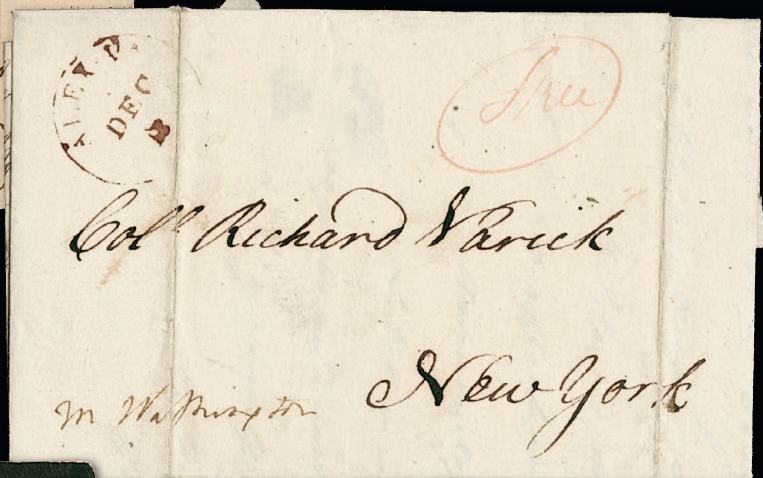 ALEX.D
DEC
2
Free
Coll Richard Varick
New York
M Washington